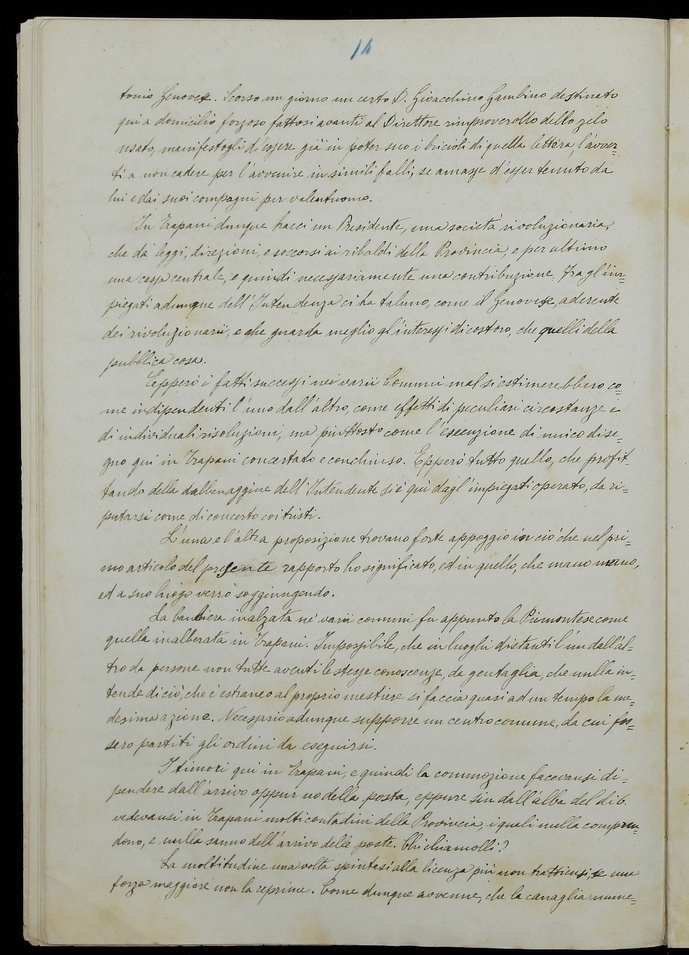 14
tonio Genovese. Scorso un giorno un certo D. Gioacchino Gambino destinato
qui a domicilio forzoso fattosi avanti al Direttore rimproverollo dello zelo
usato, manifestogli d'essere già in poter suo i bricioli di quella lettera, l'avver-
tì a non cadere per l'avvenire in simili falli, se amasse d'esser tenuto da
lui e dai suoi compagni per valentuomo.
In Trapani dunque hacci un Presidente, una società rivoluzionaria,
che dà leggi, direzioni, e soccorsi ai ribaldi della Provincia, e per ultimo
una cassa centrale, e quindi necessariamente una contribuzione. Fra gl'im-
piegati adunque dell'Intendenza ci ha taluno, come il Genovese, aderente
dei rivoluzionarii, e che guarda meglio gl'interessi di costoro, che quelli della
pubblica cosa.
Epperò i fatti successi nei varii Comuni mal si estimerebbero co-
me indipendenti l'uno dall'altro, come effetti di peculiari circostanze e
di individuali risoluzioni, ma piuttosto come l'esecuzione di unico dise-
gno qui in Trapani concertato e conchiuso. Epperò tutto quello, che profit-
tando della dabbenaggine dell'Intendente si è quì dagl'impiegati operato, da ri-
putarsi come di concerto coi tristi.
L'una e l'altra proposizione trovano forte appoggio in ciò che nel pri-
mo articolo del presente rapporto ho significato, ed in quello, che mano mano,
ed a suo luogo verrò soggiungendo.
La bandiera inalzata ne' varii comuni fu appunto la Piemontese come
quella inalberata in Trapani. Impossibile, che in luoghi distanti l'un dall'al-
tro da persone non tutte aventi le stesse conoscenze, da gentaglia, che nulla in-
tende di ciò, che è estraneo al proprio mestiere si faccia quasi ad un tempo la me-
desima azione. Necessario adunque supporre un centro comune, da cui fos-
sero partiti gli ordini da eseguirsi.
I timori qui in Trapani, e quindi la commozione facevansi di-
pendere dall'arrivo oppur no della posta, eppure sin dall'alba del dì 6.
vedevansi in Trapani molti contadini della Provincia, i quali nulla compren-
dono, e nulla sanno dell'arrivo delle poste. Chi chiamolli?
La moltitudine una volta spintasi alla licenza più non trattiensi, se una
forza maggiore non la reprime. Come dunque avvenne, che la canaglia nume-